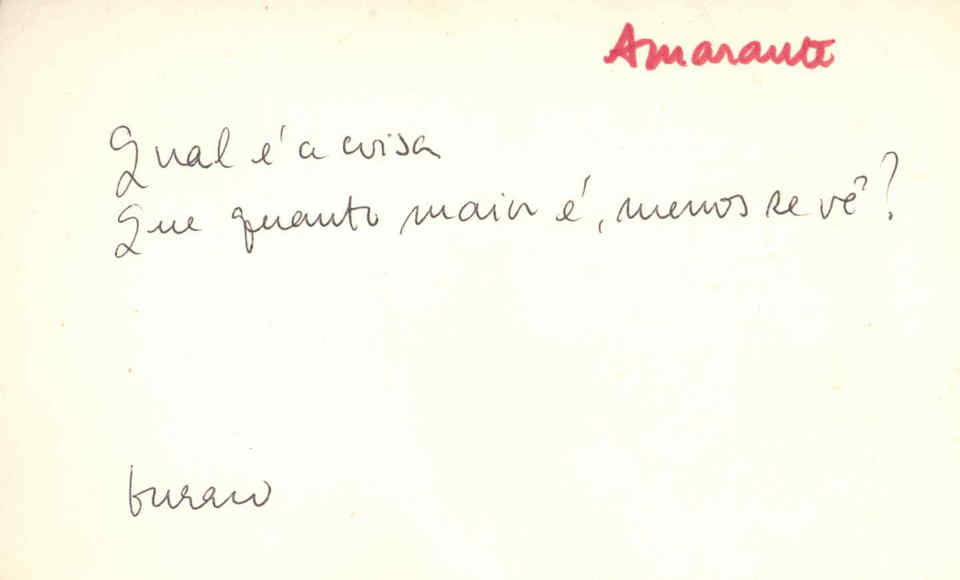 Amarante
Qual é a coisa
Que quanto maior é, menos se vê?
buraco